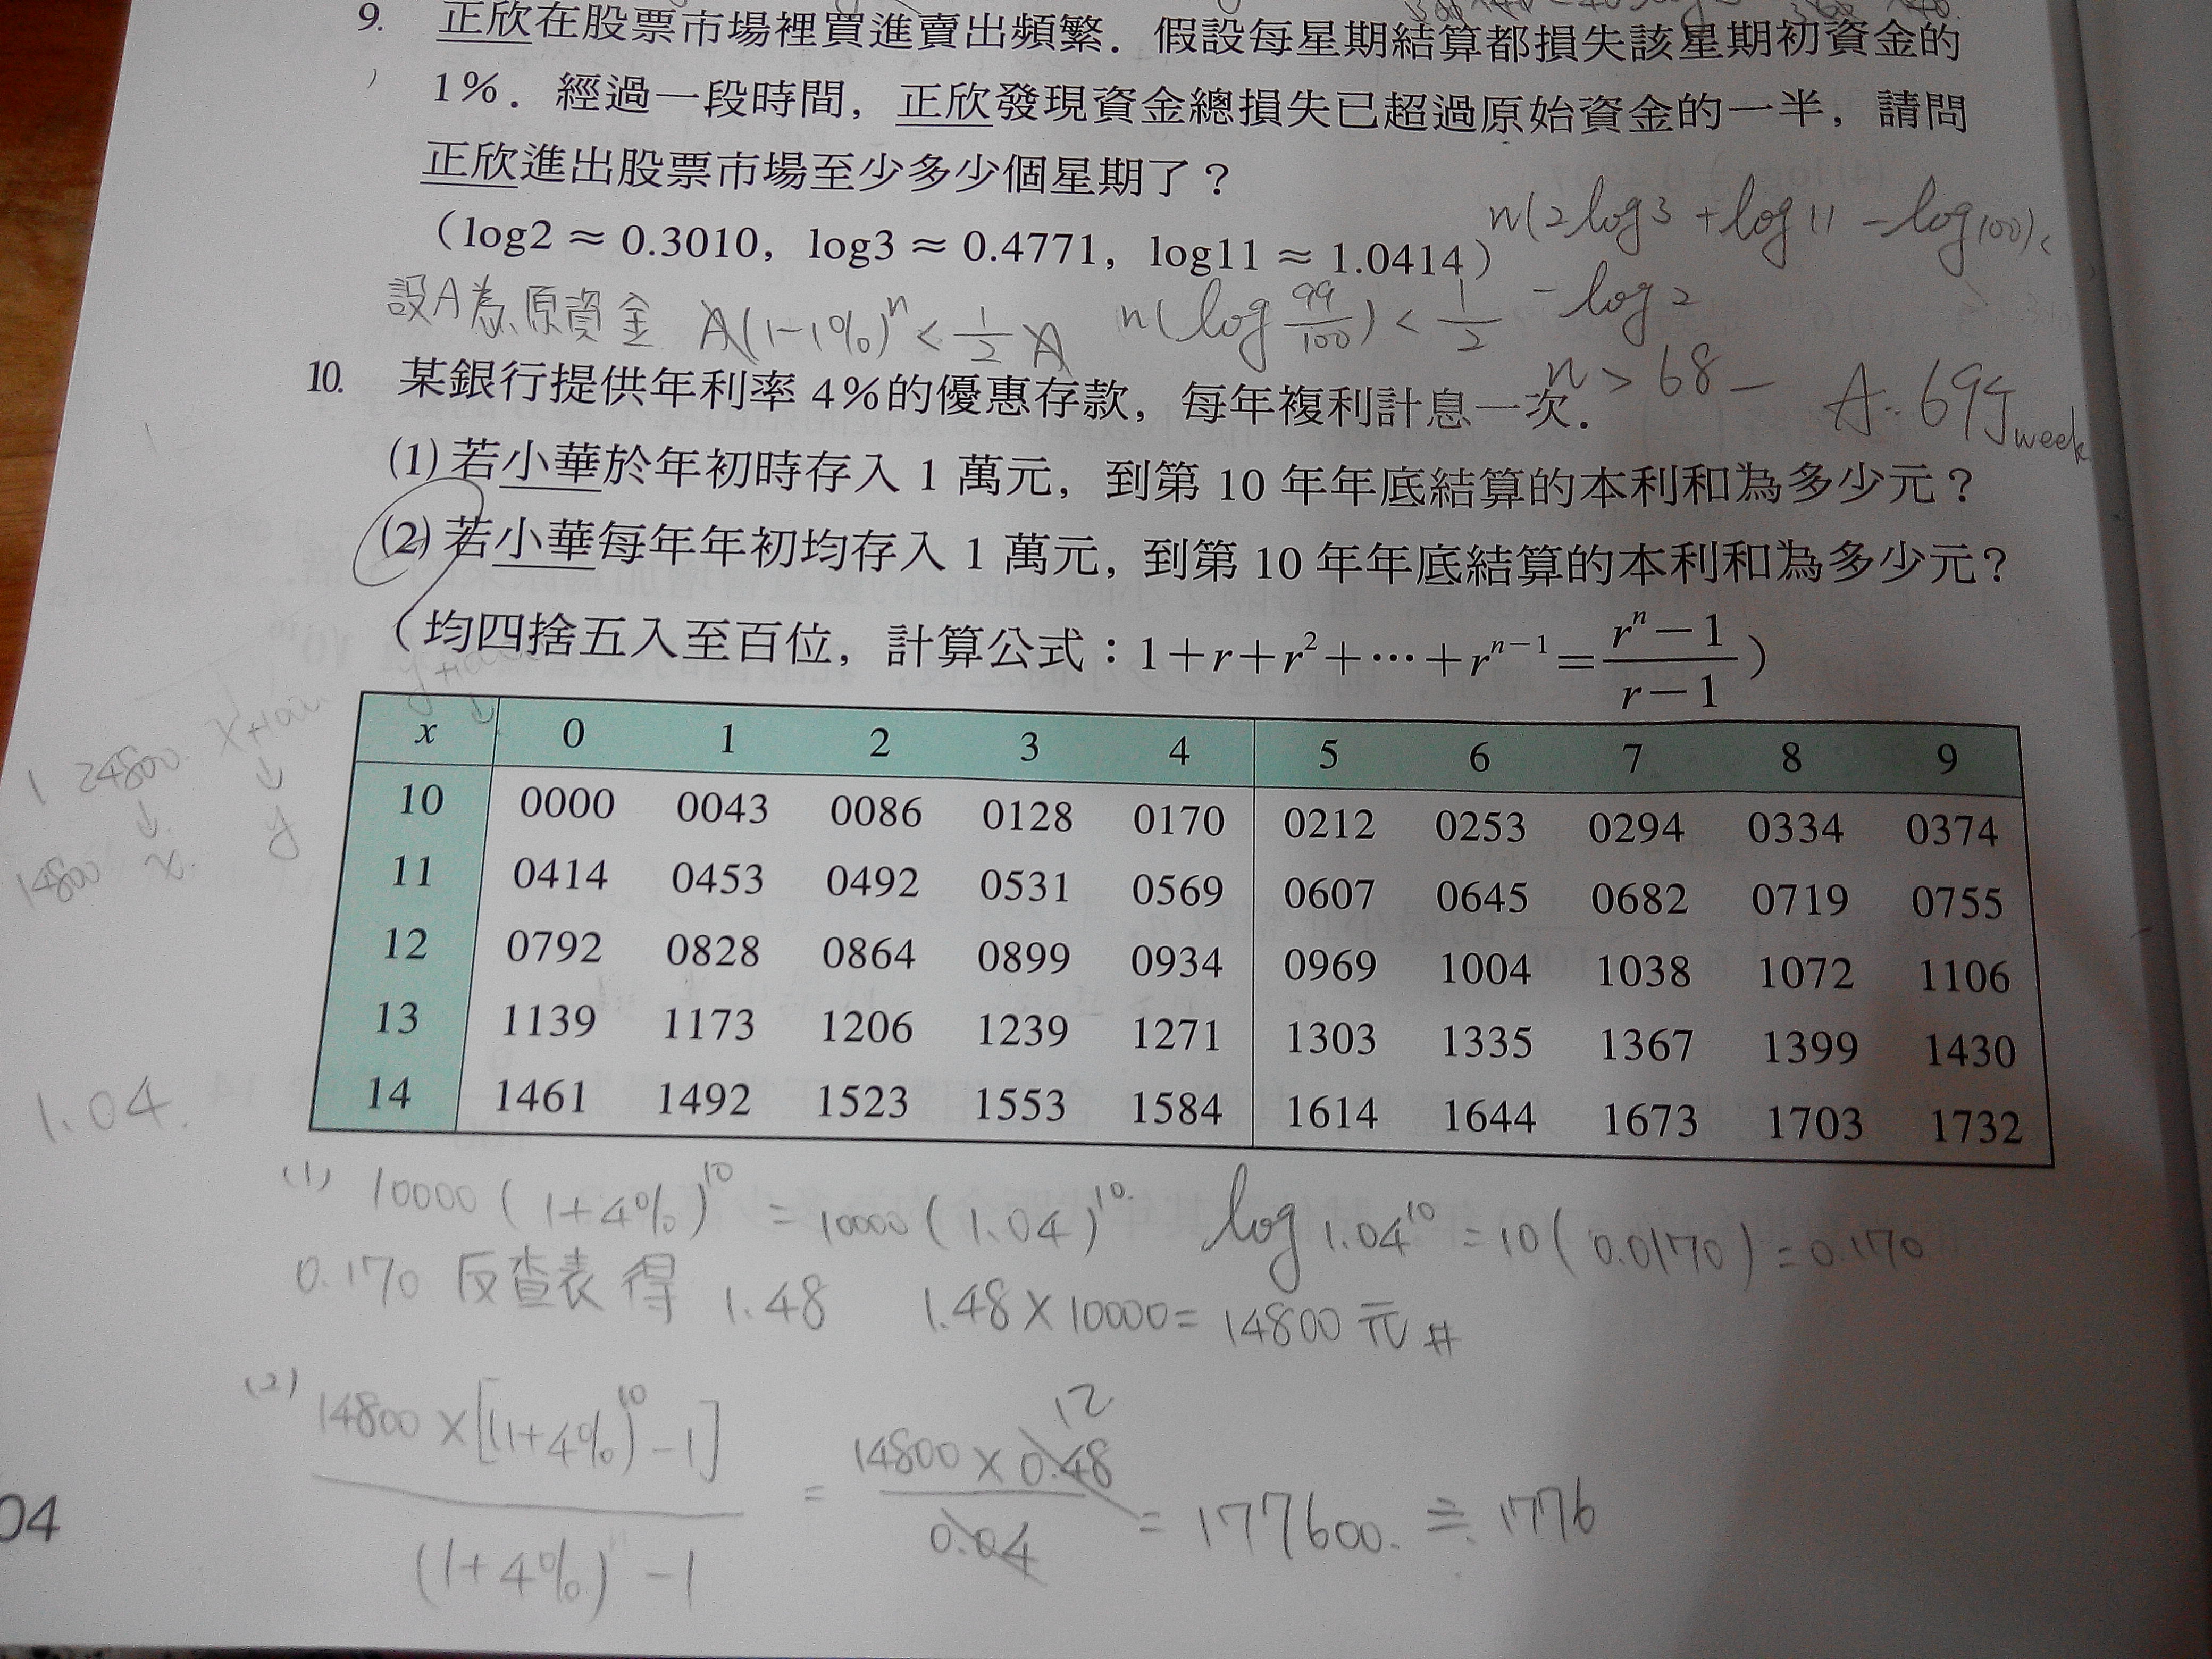 9. 正欣在股票市場裡買進賣出頻繁．假設每星期結算都損失該星期初資金的
1%．經過一段時間，正欣發現資金總損失已超過原始資金的一半，請問
正欣進出股票市場至少多少個星期了？
（log2 ≈ 0.3010，log3 ≈ 0.4771，log11 ≈ 1.0414）
n(2log3 + log11 - log100) <
設A為原資金 A(1-1%)^n < 1/2 A n(log 99/100) < 1/2 - log2
n > 68 - A: 69 week
10. 某銀行提供年利率 4%的優惠存款，每年複利計息一次．
(1) 若小華於年初時存入 1 萬元，到第 10 年年底結算的本利和為多少元？
(2) 若小華每年年初均存入 1 萬元，到第 10 年年底結算的本利和為多少元？
（均四捨五入至百位，計算公式：1+r+r^2+⋯+r^{n-1}=(r^n-1)/(r-1)）
1 24800
↓ ↓
14800 x. y
x 0 1 2 3 4 5 6 7 8 9
10 0000 0043 0086 0128 0170 0212 0253 0294 0334 0374
11 0414 0453 0492 0531 0569 0607 0645 0682 0719 0755
12 0792 0828 0864 0899 0934 0969 1004 1038 1072 1106
13 1139 1173 1206 1239 1271 1303 1335 1367 1399 1430
14 1461 1492 1523 1553 1584 1614 1644 1673 1703 1732
1.04.
(1) 10000(1+4%)^10 = 10000(1.04)^10. log 1.04^10 = 10(0.0170) = 0.170
0.170 反查表得 1.48 1.48×10000 = 14800 元 #
(2) 14800×[(1+4%)^10-1] / (1+4%)-1 = 14800×0.48 / 0.04 12 = 177600. ≒ 1776
04